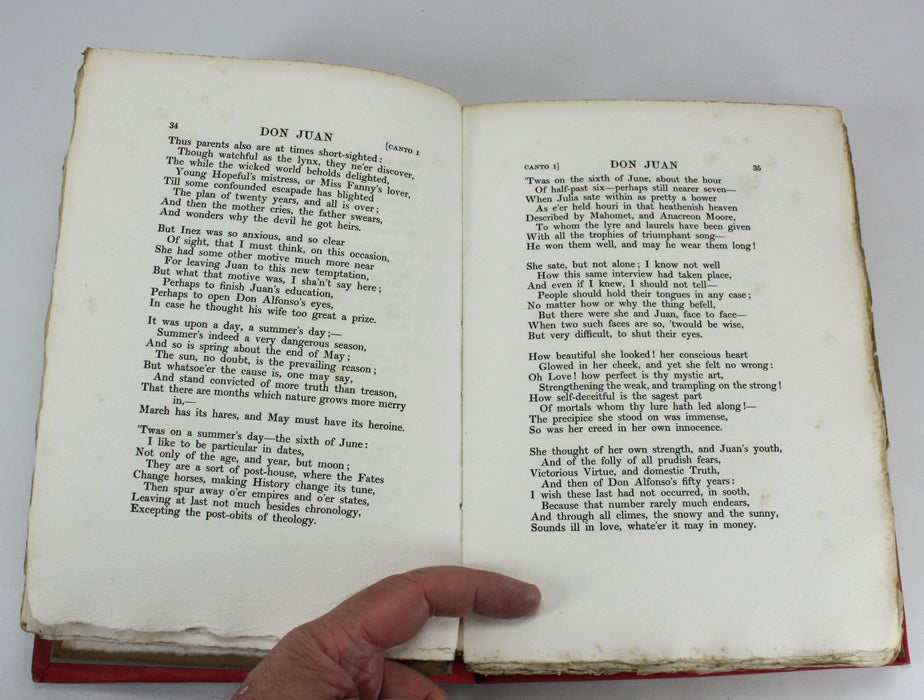 34
DON JUAN
[CANTO I
Thus parents also are at times short-sighted:
Though watchful as the lynx, they ne'er discover,
The while the wicked world beholds delighted,
Young Hopeful's mistress, or Miss Fanny's lover,
Till some confounded escapade has blighted
The plan of twenty years, and all is over;
And then the mother cries, the father swears,
And wonders why the devil he got heirs.
But Inez was so anxious, and so clear
Of sight, that I must think, on this occasion,
She had some other motive much more near
For leaving Juan to this new temptation,
But what that motive was, I sha'n't say here;
Perhaps to finish Juan's education,
Perhaps to open Don Alfonso's eyes,
In case he thought his wife too great a prize.
It was upon a day, a summer's day;—
Summer's indeed a very dangerous season,
And so is spring about the end of May;
The sun, no doubt, is the prevailing reason;
But whatsoe'er the cause is, one may say,
And stand convicted of more truth than treason,
That there are months which nature grows more merry
in,—
March has its hares, and May must have its heroine.
'Twas on a summer's day—the sixth of June:
I like to be particular in dates,
Not only of the age, and year, but moon;
They are a sort of post-house, where the Fates
Change horses, making History change its tune,
Then spur away o'er empires and o'er states,
Leaving at last not much besides chronology,
Excepting the post-obits of theology.
CANTO I]
DON JUAN
35
'Twas on the sixth of June, about the hour
Of half-past six—perhaps still nearer seven—
When Julia sate within as pretty a bower
As e'er held houri in that heathenish heaven
Described by Mahomet, and Anacreon Moore,
To whom the lyre and laurels have been given
With all the trophies of triumphant song—
He won them well, and may he wear them long!
She sate, but not alone; I know not well
How this same interview had taken place,
And even if I knew, I should not tell—
People should hold their tongues in any case;
No matter how or why the thing befell,
But there were she and Juan, face to face—
When two such faces are so, 'twould be wise,
But very difficult, to shut their eyes.
How beautiful she looked! her conscious heart
Glowed in her cheek, and yet she felt no wrong:
Oh Love! how perfect is thy mystic art,
Strengthening the weak, and trampling on the strong!
How self-deceitful is the sagest part
Of mortals whom thy lure hath led along!—
The precipice she stood on was immense,
So was her creed in her own innocence.
She thought of her own strength, and Juan's youth,
And of the folly of all prudish fears,
Victorious Virtue, and domestic Truth,
And then of Don Alfonso's fifty years:
I wish these last had not occurred, in sooth,
Because that number rarely much endears,
And through all climes, the snowy and the sunny,
Sounds ill in love, whate'er it may in money.